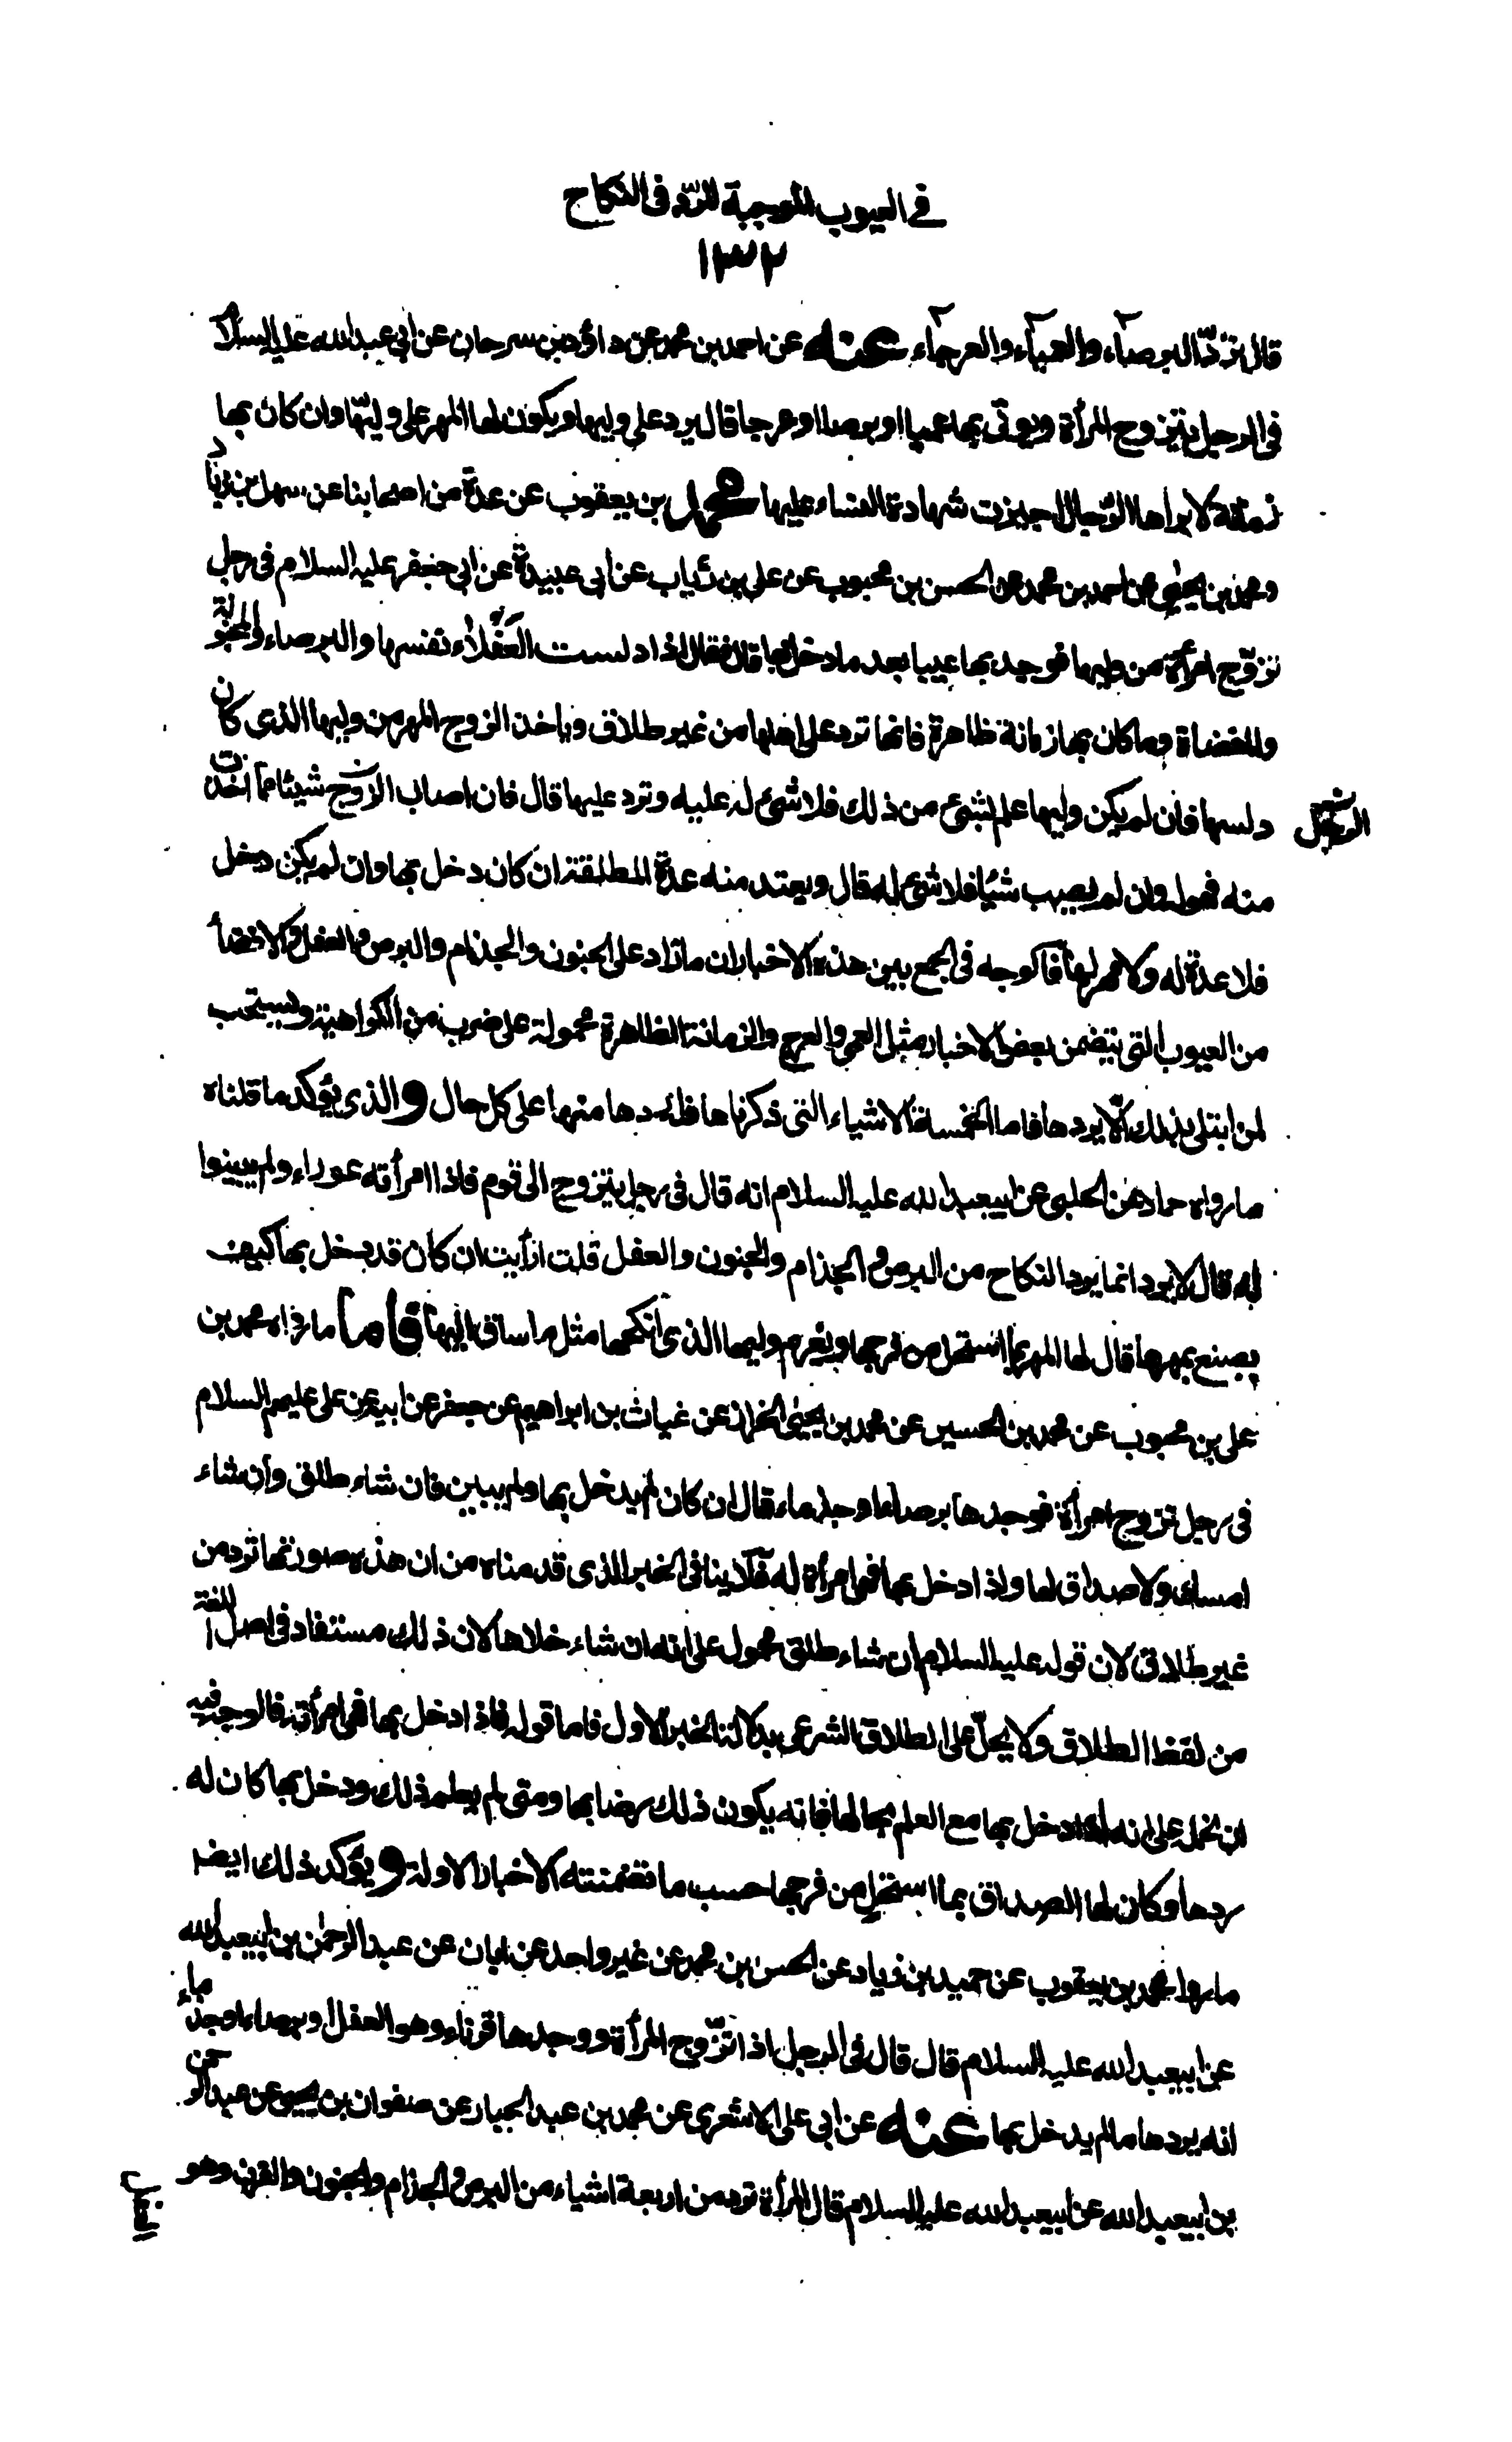 في العيوب الموجبة للرّد فى النكاح
١٣٢
قال تردّ البرصآء والعميآء والعرجآء عنه عن احمد بن محمد عن داؤد بن سرحان عن ابي عبد الله عليه السلام
فى الرجل يتزوج المرأة ويوتى بها عميا او برصا او عرجا قال يرد على وليها ويكون لها المهر على وليّها وان كان بها
زمانة لا يراها الرّجال اجيزت شهادة النساء عليها محمد بن يعقوب عن عدة من اصحابنا عن سهل بن زياد
ومحمد بن يحيى عن احمد بن محمد عن الحسن بن محبوب عن علي بن رئاب عن ابى عبيدة عن ابي جعفر عليه السلام فى رجل
تزوّج امرأة من وليها فوجد بها عيبا بعد ما دخل بها قال فقال اذا دلست العَفْلاء نفسها والبرصاء والمجنونة
والمفضاة وما كان بها زمانة ظاهرة فانها ترد على اهلها من غير طلاق وياخذ الزوج المهر من وليها الذى كان
دلسها فان لم يكن وليها علم بشىء من ذلك فلا شئ له عليه وترد عليها قال فان اصاب الزوج شيئا مما اخذت
منه فهو له وان لم يصب شيئا فلا شئ له قال ويعتد منه عدة المطلقة ان كان دخل بها وان لم يكن دخل
فلا عدة له ولا مهر لها فالوجه فى الجمع بين هذه الاخبار ان ما زاد على الجنون والجذام والبرص والعفل والافضأ
من العيوب التى يتضمن بعض الاخبار مثل العمى والعرج والزمانة الظاهرة محمولة على ضرب من الكراهية ويستحب
لمن ابتلى بذلك الّا يردها فاما الخمسة الاشياء التى ذكرناها فله ردها منها على كل حال والذى يؤكد ما قلناه
ما رواه حماد عن الحلبى عن ابيعبد الله عليه السلام انه قال فى رجل يتزوج الى قوم فاذا امرأته عوراء ولم يبينوا
له قال لا يرد انما يرد النكاح من البرص والجذام والجنون والعفل قلت ارأيت ان كان قد دخل بها كيف
يصنع بمهرها قال لها المهر بما استحل من فرجها ويغرم وليها الذى انكحها مثل ما ساق اليها فاما ما رواه محمد بن
علي بن محبوب عن محمد بن الحسين عن محمد بن يحيى الخراز عن غياث بن ابراهيم عن جعفر عن ابيه عن على عليهم السلام
فى رجل تزوج امرأة فوجدها برصاء او جذماء قال ان كان لم يدخل بها ولم يبين فان شاء طلق وان شاء
امسك ولا صداق لها واذا دخل بها فهى امرأة له فلا ينافى الخبر الذى قدمناه من ان هذه صورتها ترد من
غير طلاق لان قوله عليه السلام ان شاء طلق محمول على انه ان شاء خلاها لان ذلك مستفاد فى اصل اللغة
من لفظ الطلاق ولا يحل على الطلاق الشرعى بدلالة الخبر الاول فاما قوله فاذا دخل بها فهى امرأته فالوجه فيه
ان نحمله على انه اذا دخل بها مع العلم بحالها فانه يكون ذلك رضا بها ومتى لم يعلم ذلك ودخل بها كان له
ردها وكان لها الصداق بما استحل من فرجها حسب ما تضمنته الاخبار الاولة ويؤكد ذلك ايضا
ما رواه محمد بن يعقوب عن حميد بن زياد عن الحسن بن محمد عن غير واحد عن ابان عن عبد الرحمن بن ابيعبد الله
عن ابيعبد الله عليه السلام قال قال فى الرجل اذا تزّوج المرأة ووجدها قرناء وهو العفل او برصاء او جذماء
انه يردها ما لم يدخل بها عنه عن ابي على الاشعرى عن محمد بن عبد الجبار عن صفوان بن يحيى عن عبد الرحمن
بن ابيعبد الله عن ابيعبد الله عليه السلام قال المرأة ترد من اربعة اشياء من البرص والجذام والجنون والقرن وهو